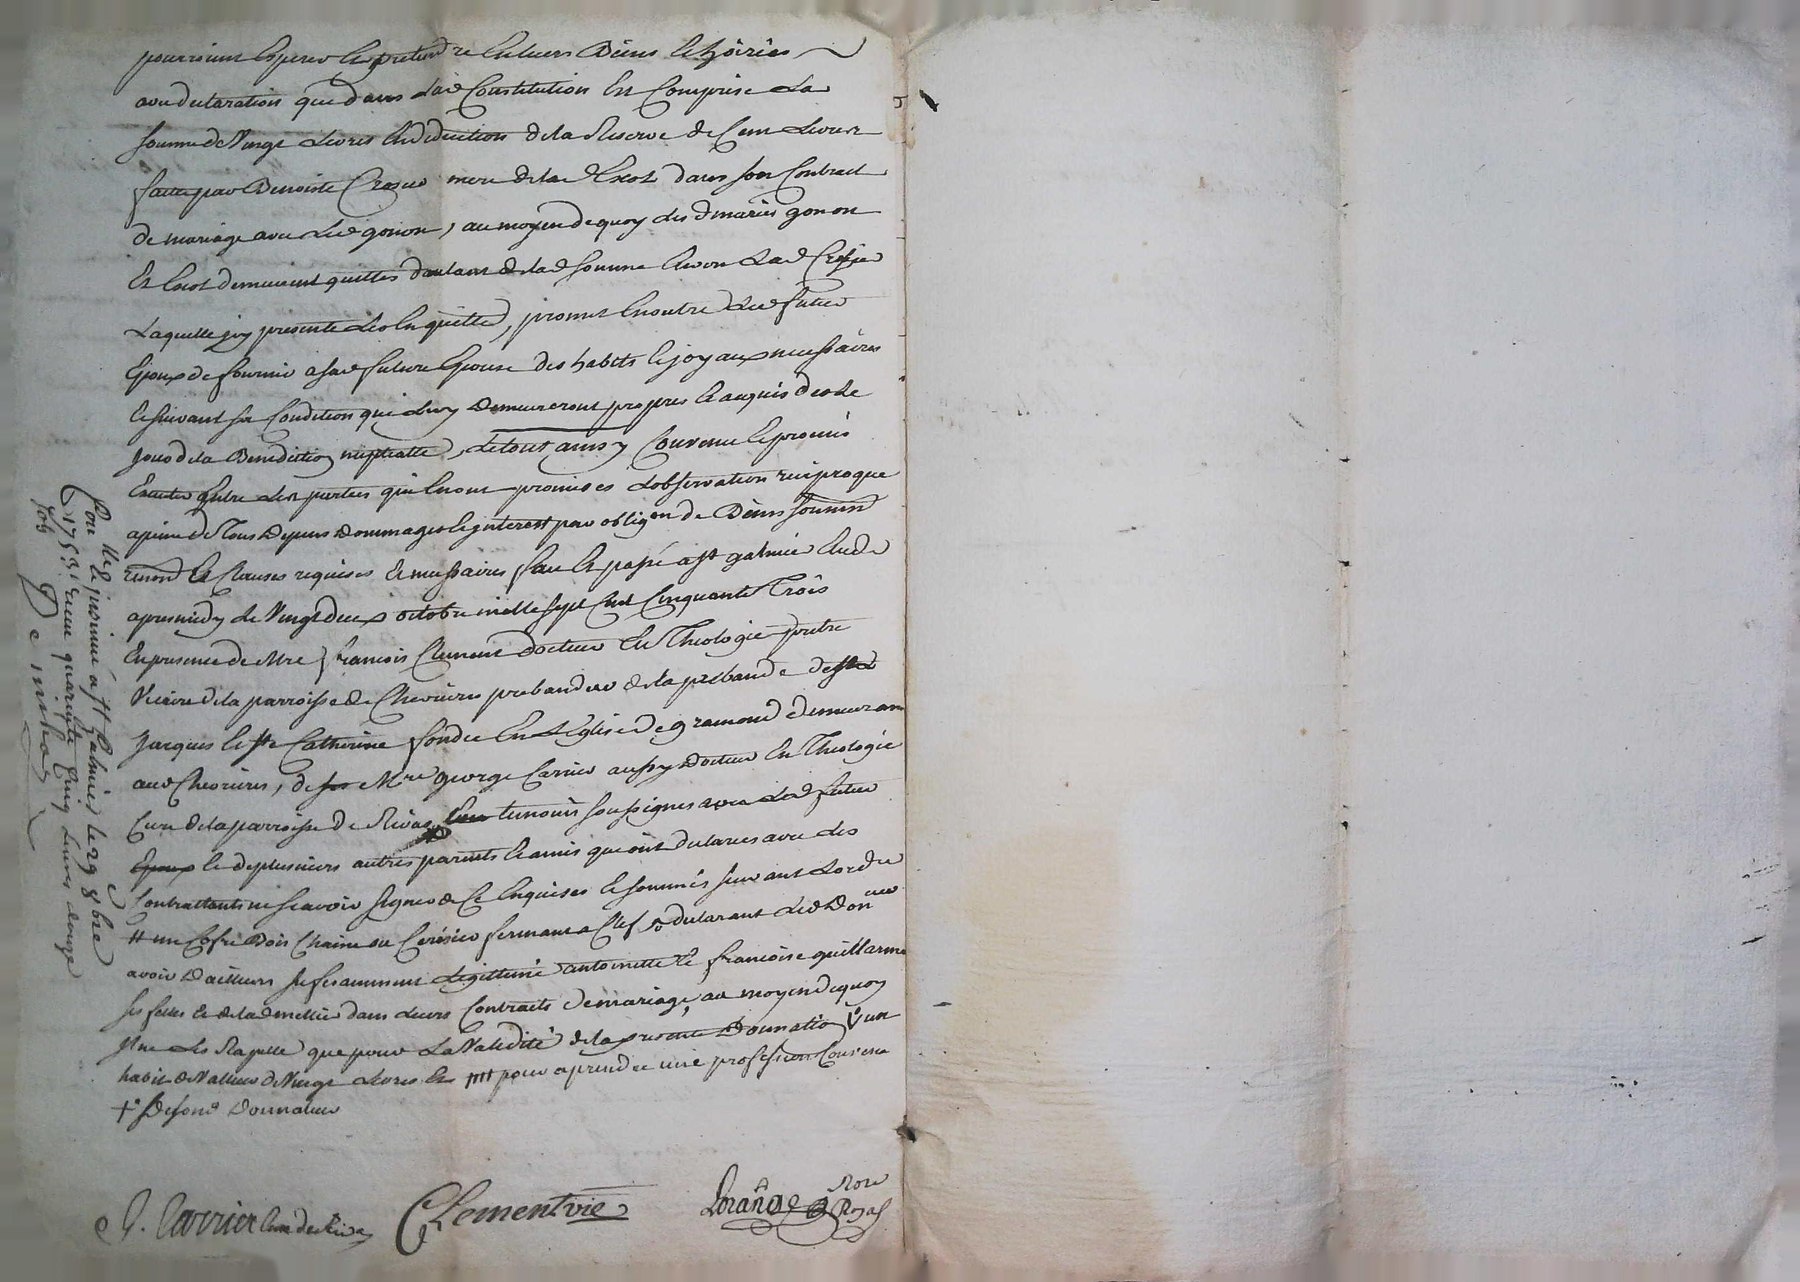 pourroient esperer et pretendre en leurs Biens et hoiries
avec declaration que dans lade Constitution est Comprise La
somme de Vingt Livres en deduction de la Reserve de Cent Livres
faitte par Benoiste mere de lad Escot dans son Contract
de mariage avec led gonon, au moyen de quoy les d mariés gonon
Et Escot demeurent quittes d'autant de lad somme envers Lad
Laquelle icy presente Les En quitte, promet En outre Led futur
Epoux de fournir a sad future Epouse des habits et joyaux necessaires
et suivant sa Condition qui Luy Demeureront propres et acquis des le
jour de la Benediction nuptialle, Le tout ainsy Convenu et promis
Entre Les parties qui En ont promis Lobservation reciproque
a peine de Tous Depens Dommages et interest par obligon de Biens soumn
renon Et Clauses requises et necessaires fait Et passé a St galmier Etude
apres midy Le Vingt deux octobre mille sept Cent Cinquante Trois
En presence de Mre françois Clement docteur En Theologie pretre
Vicaire de la parroisse de Chevrieres prebandier de la prebande de St
Jacques et Ste Catherine fondée En L'Eglise de gramond demeurant
aud Chevrieres, de Mre george Carrier aussy Docteur En Theologie
Curé de la parroisse de Rivas temoins soussignés avec Led futur
Epoux et de plusieurs autres parents et amis qui ont declaré avec les
Contractants ne scavoir signer de Ce Enquises et sommés suivant Lordce
# un Cofre Bois Chaine ou Cerisier fermant a Clef declarant Led Donneur
avoir D'ailleurs suffisamment Legittimé antoinette et françoise guillarme
ses filles et de lad mellier dans Leurs Contracts de mariage, au moyen de quoy
il ne Les Rapelle que pour La Validité de la presente Donnation un
habit de Valleur de Vingt Livres Et pour aprendre une profession Convenue
+ Donnateur
G. Carrier Curé de Rivas
Clement vic
Note
Royal
Conlle et insinué a St Galmier le 29 8bre
1753 recu quarante Cinq Livres douze
sols